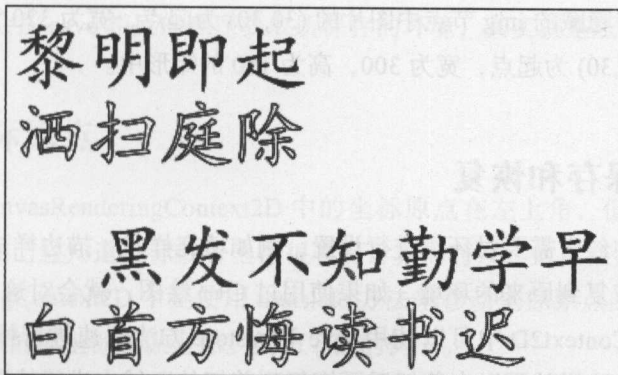 黎明即起
洒扫庭除
黑发不知勤学早
白首方悔读书迟